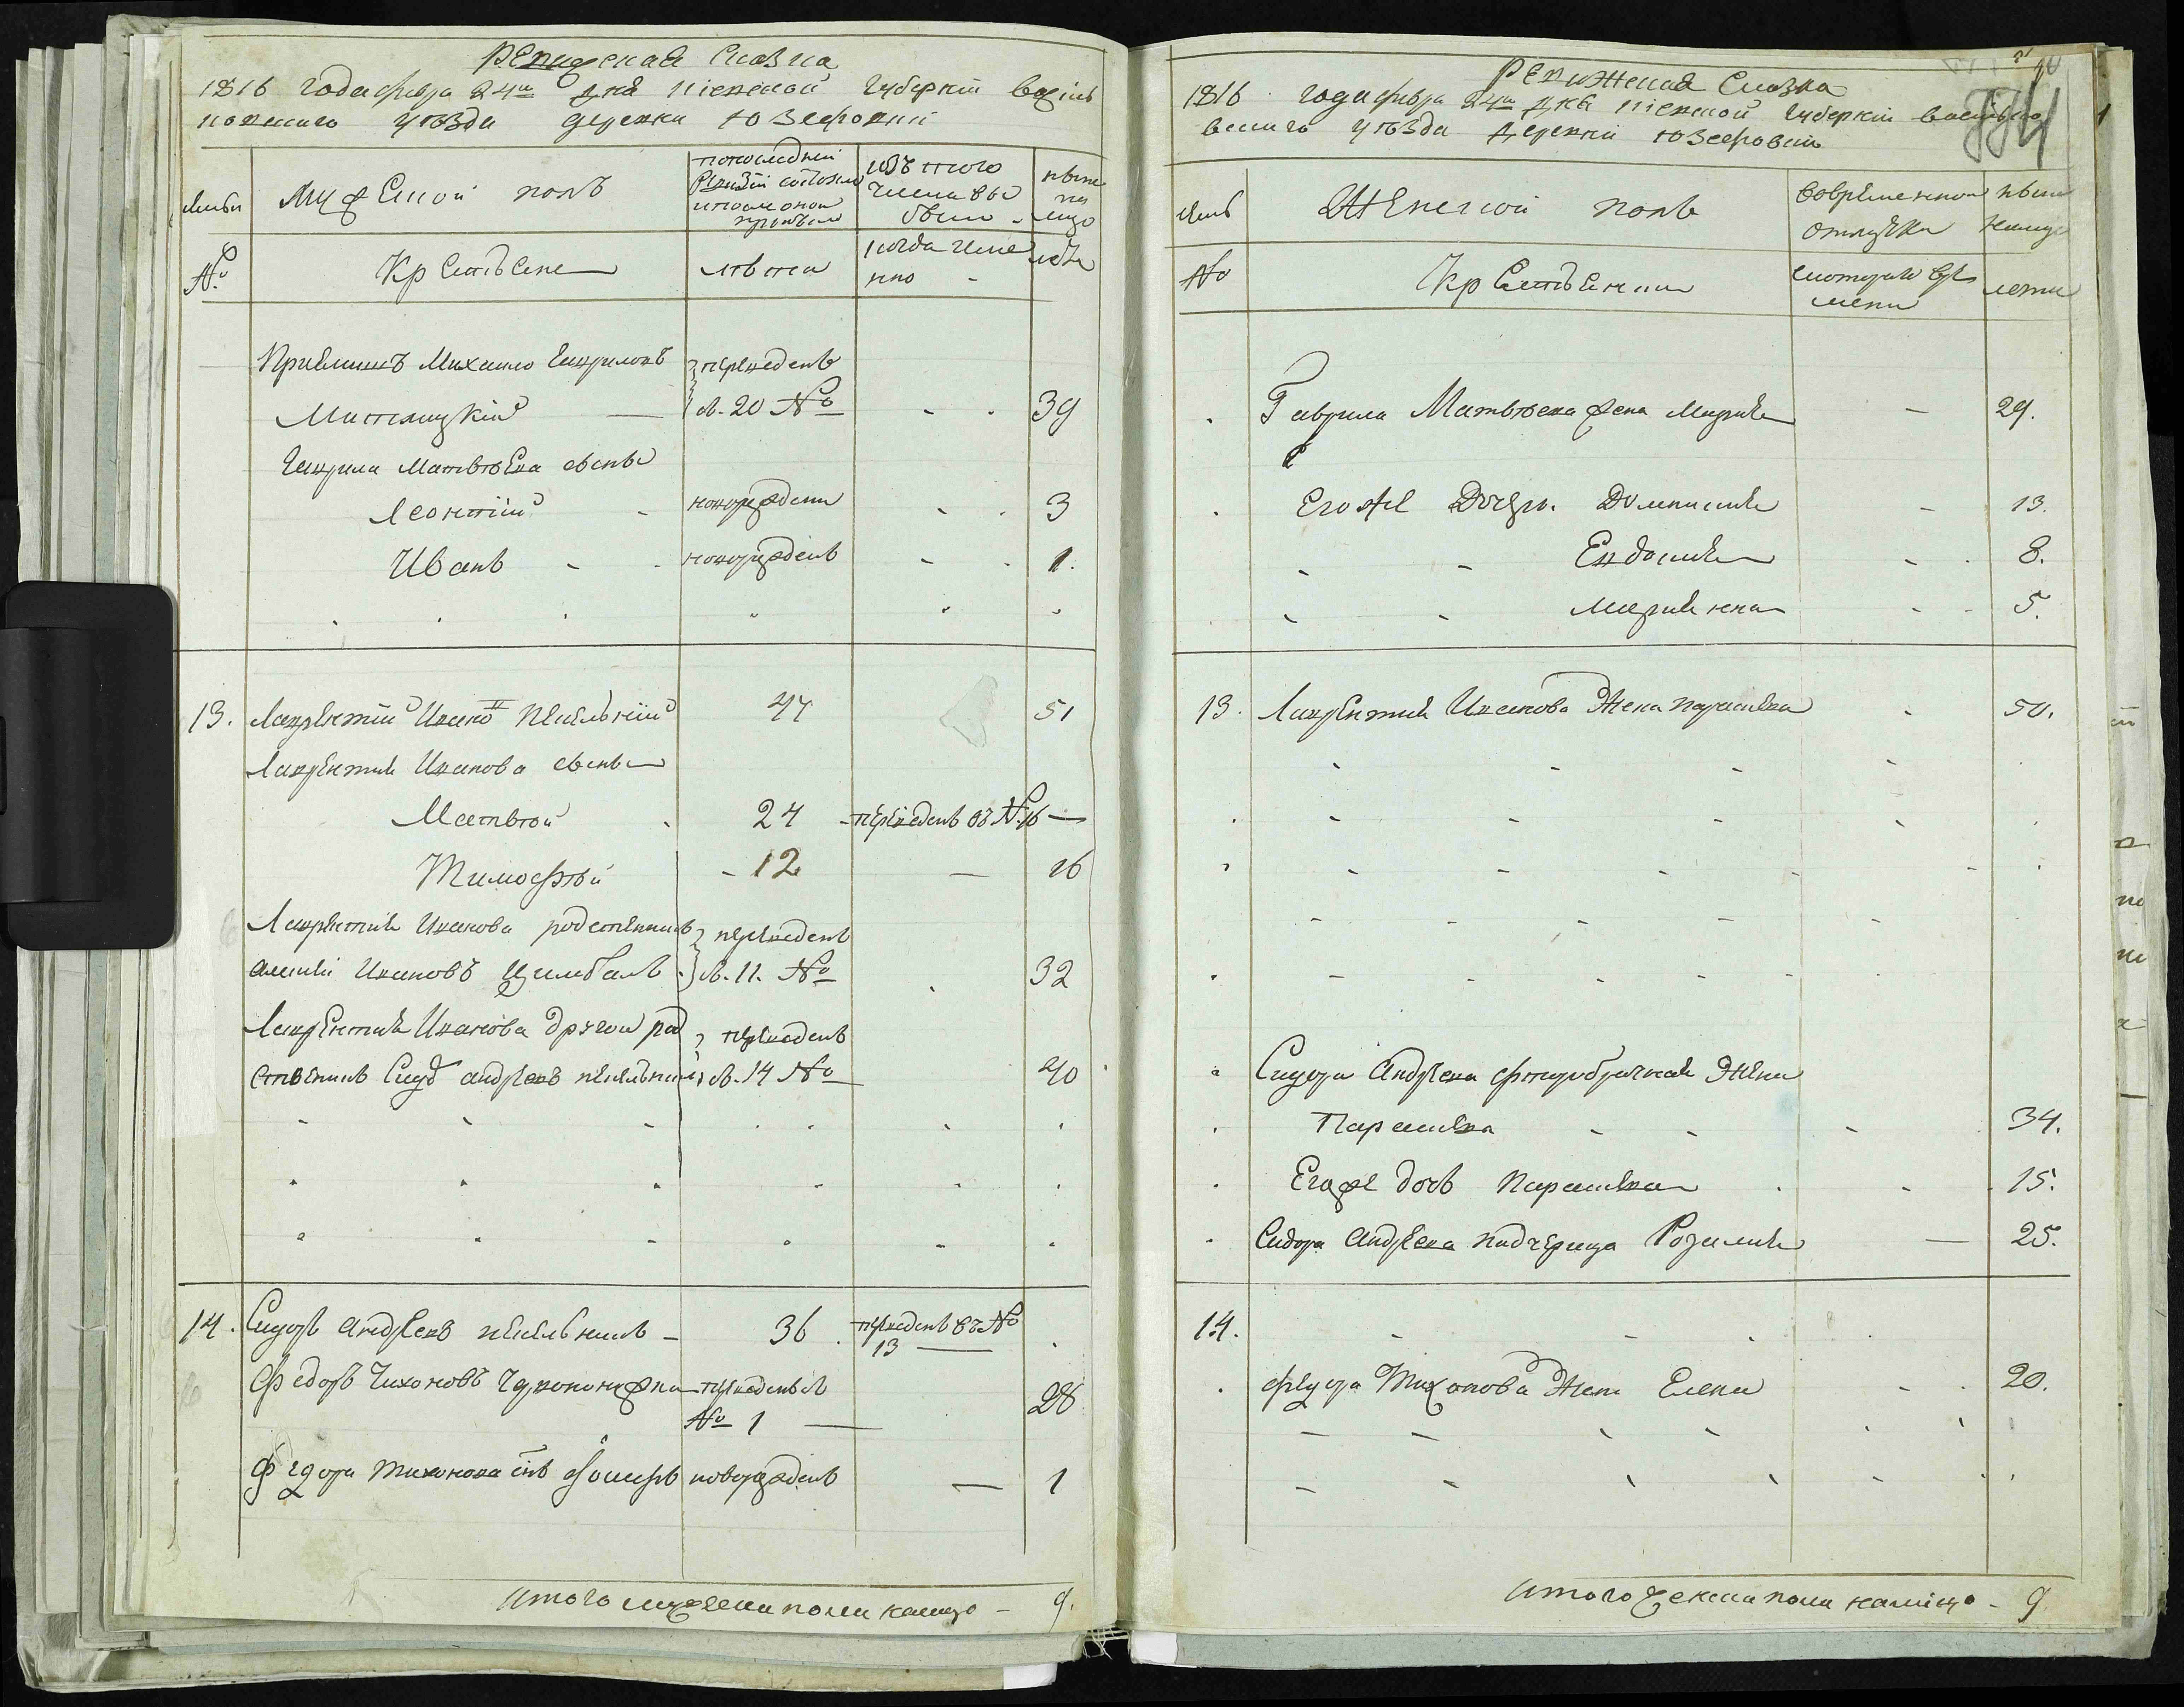 Ревижская Сказка
1816 года февра 24го дня Кіевской Губерніи Василь
ковского уѣзда деревни Юзефовки
Семьи
Мужеской полъ
По последней Ревизіи состояло и после оной прибыло
Изъ того числа выбыло
Ныне на лицо
№
Крестьяне
лѣта
когда именно
лѣта
Приемышъ Михайло Гавриловъ переведенъ
с. 20 № 39
Гаврила Матвѣева сыны
Леонтій новорожденъ 3
Иванъ новорожденъ 1.
13. Лаврентій Ивановъ 47 51
Лаврентия Иванова сыны
Матвѣй 24 переведенъ въ № 16
Тимофѣй 12 16
Лаврентия Иванова родственникъ переведенъ
Ивановъ Цимбалъ с. 11. № 32
Лаврентия Иванова другой род переведенъ
ственникъ Сидоръ Андреевъ с. 14 № 40
14. Сидоръ Андреевъ 36 переведенъ въ № 13
Федоръ Тихоновъ переведенъ с № 1 28
Федора Тихонова сынъ новорожденъ 1
Итого мужеска пола налицо 9.
Ревижская Сказка
1816 года февра 24го дня Кіевской Губерніи Василько
вского уѣзда деревни Юзефовки
774
Семьи
Женской полъ
Во временной отлучке
Ныне налицо
№
Крестьянки
с которого времени
лѣта
Гаврила Матвѣева жена Мария 29.
Его же дочери Домникия 13.
Евдокия 8.
Марианна 5.
13. Лаврентия Иванова жена Парасковья 50.
Сидора Андреева второбрачная жена
Парасковья 34.
Его же дочь Парасковья 15.
Сидора Андреева падчерица Розалия 25.
14.
Федора Тихонова жена Елена 20.
Итого женска пола налицо 9